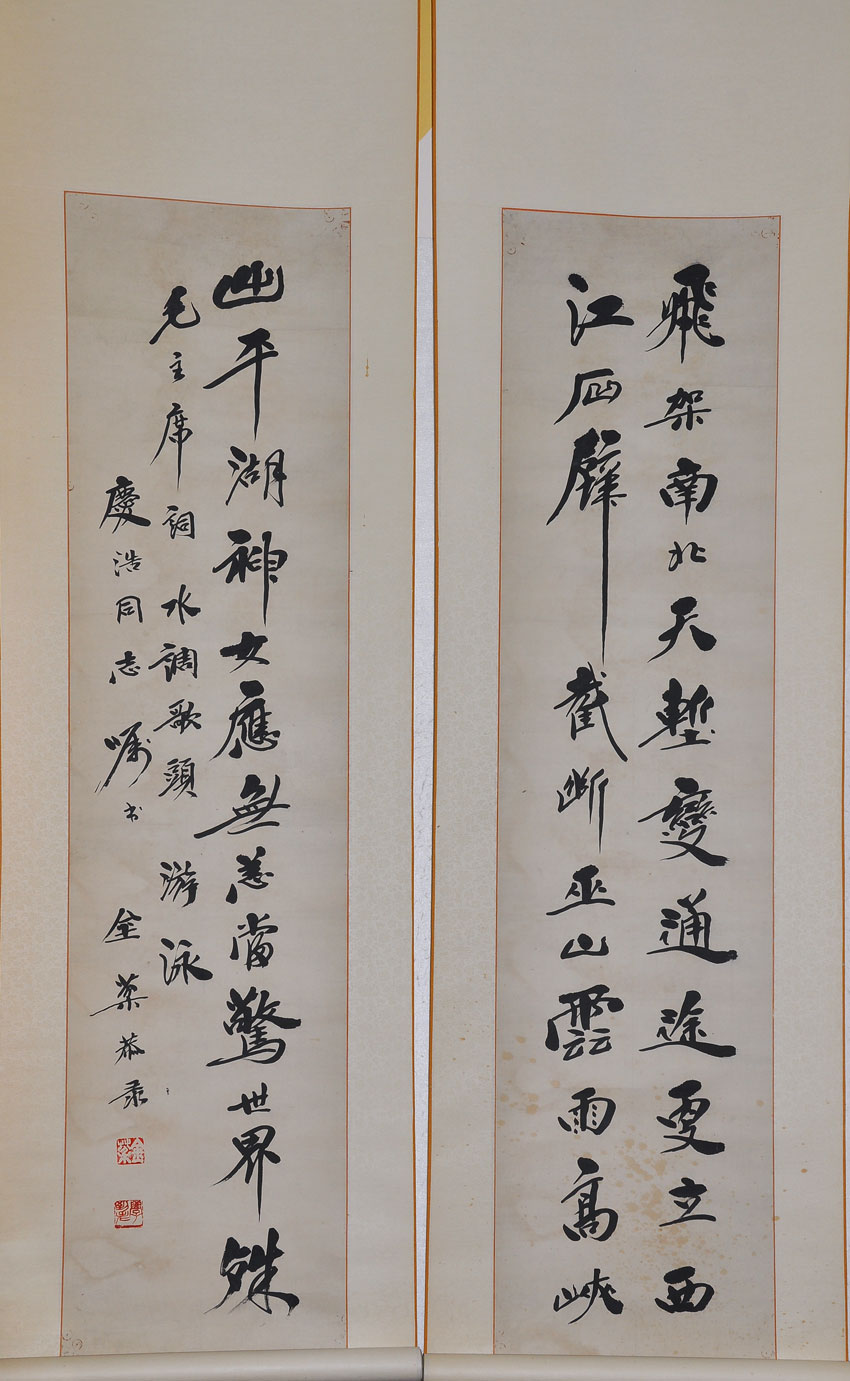 飛架南北天塹變通途更立西
江石壁截斷巫山雲雨高峽
出平湖神女應無恙當驚世界殊
毛主席詞水調歌頭游泳
慶浩同志嘱书 金 恭录